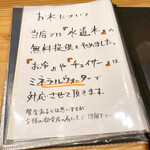 お水について
当店では『水道水』の
無料提供をやめました。
『お冷』や『チェイサー』は
ミネラルウォーターで
対応させて頂きます。